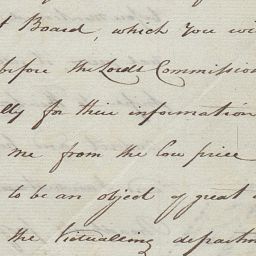 t Board, which you wi
before the Lords Commission
lly for their information
me from the low price
to be an object of great
the Victualling departm